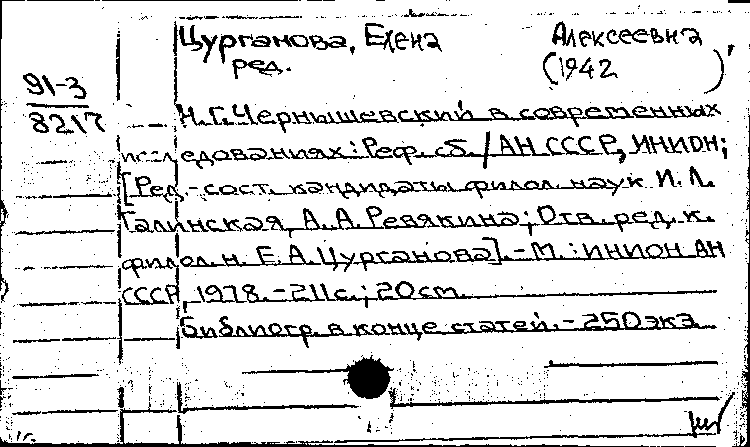 Цурганова, Елена Алексеевна
ред. (1942 )
91-3
8217
Н.Г.Чернышевский в современных
исследованиях: Реф. сб. / АН СССР, ИНИОН;
[Ред.-сост. кандидаты филол. наук И. Л.
Галинская, А. А. Ревякина; Отв. ред. к.
филол. н. Е. А. Цурганова]. - М. : ИНИОН АН
СССР, 1978. - 211с. ; 20 см.
Библиогр. в конце статей. - 250 экз.